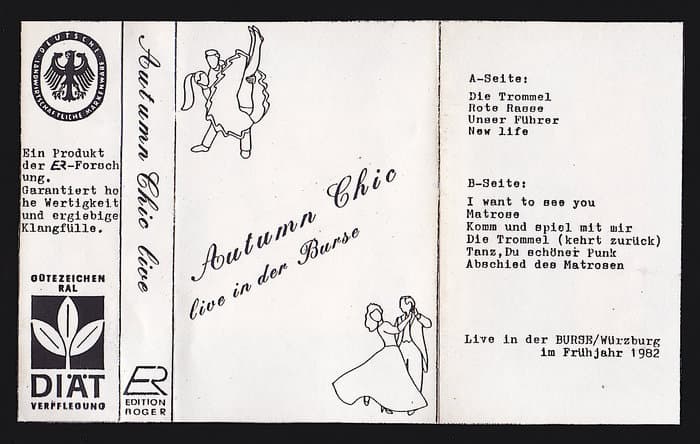 DEUTSCHE
LANDWIRTSCHAFTLICHE MARKENWARE
Ein Produkt
der ER-Forsch
ung.
Garantiert ho
he Wertigkeit
und ergiebige
Klangfülle.
GÜTEZEICHEN
RAL
DIÄT
VERPFLEGUNG
Autumn Chic live
ER
EDITION
ROGER
Autumn Chic
live in der Burse
A-Seite:
Die Trommel
Rote Rasse
Unser Führer
New life
B-Seite:
I want to see you
Matrose
Komm und spiel mit mir
Die Trommel (kehrt zurück)
Tanz,Du schöner Punk
Abschied des Matrosen
Live in der BURSE/Würzburg
im Frühjahr 1982